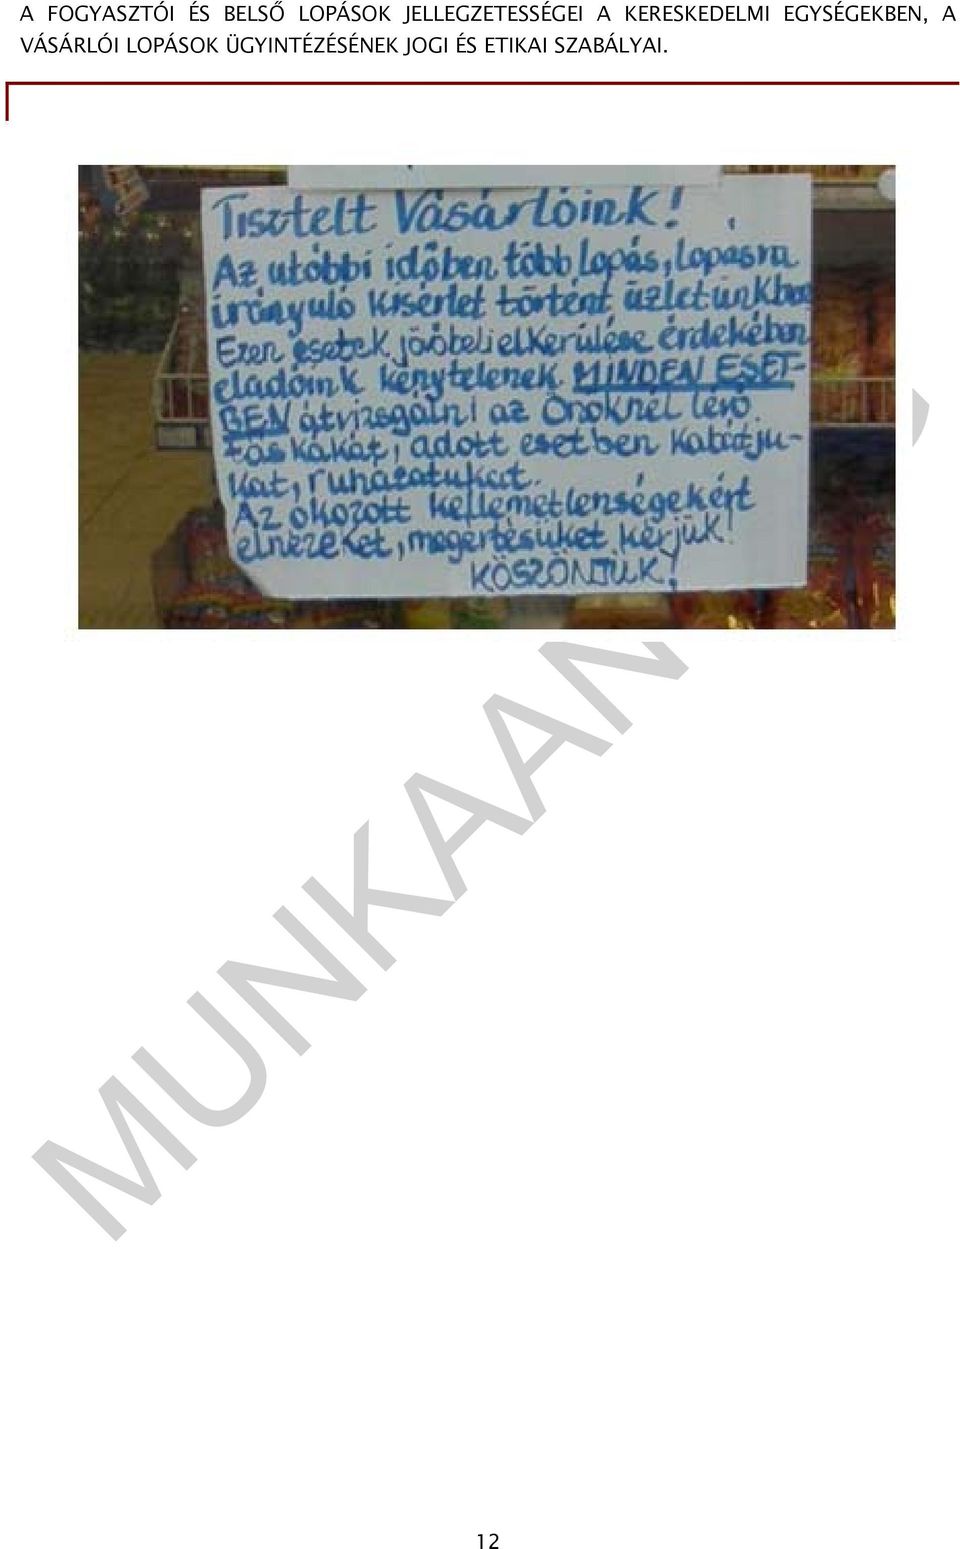 A FOGYASZTÓI ÉS BELSŐ LOPÁSOK JELLEGZETESSÉGEI A KERESKEDELMI EGYSÉGEKBEN, A
VÁSÁRLÓI LOPÁSOK ÜGYINTÉZÉSÉNEK JOGI ÉS ETIKAI SZABÁLYAI.
Tisztelt Vásárlóink!
Az utóbbi időben több lopás, lopásra
irányuló kisérlet történt üzletünkben
Ezen esetek jövőbeli elkerülése érdekében
eladóink kénytelenek MINDEN ESET-
BEN átvizsgálni az Önöknél lévő
táskákat, adott esetben kabátju-
kat, ruházatukat.
Az okozott kellemetlenségekért
elnézéket, megértésüket kérjük!
KÖSZÖNJÜK!
MUNKAAN
12